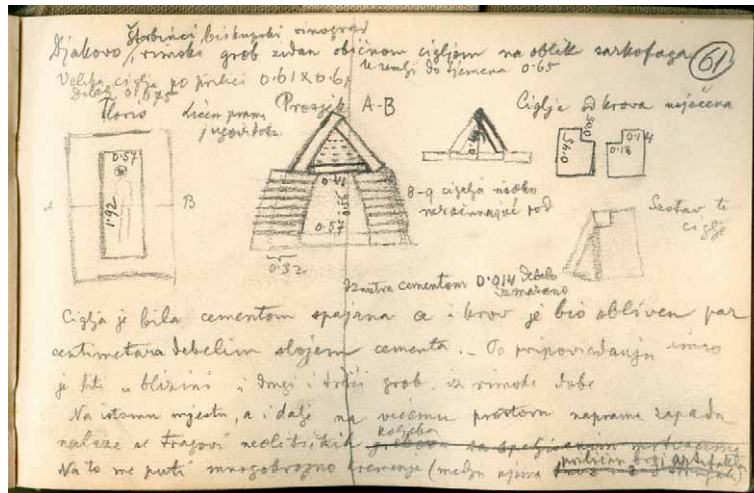 Štrbinci, biskupski vinograd
Djakovo, rimski grob zidan običnom cigljom na oblik sarkofaga
61
Velika ciglja po prilici 0.61 X 0.61
U zemlji do tjemena 0.65
Tloris
Licem prama
jugoistoku
Presjek A-B
Ciglja od krova usječena
0.57
1.92
A
B
0.41
0.50
0.57
0.32
8-9 ciglja visoko
pod
0.45
0.14
0.18
Sastav te
ciglje
Iznutra cementom 0.014 debelo
izmazano
Ciglja je bila cementom spajana a i krov je bio obliven par
centimetara debelim slojem cementa. Po pripoviedanju imao
je biti u blizini i drugi i treći grob iz rimske dobe
Na istomu mjestu, a i dalje na većemu prostoru naprama zapadu
nalaze se tragovi neolitičkih
koljeba
Na to me puti mnogobrojno kremenje (medju njima